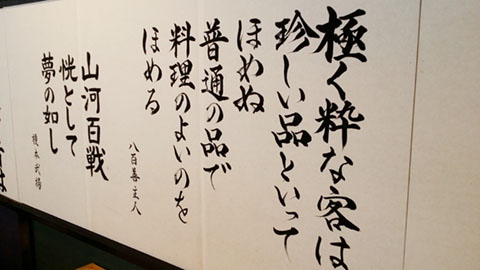 極く粋な客は
珍しい品といって
ほめぬ
普通の品で
料理のよいのを
ほめる
八百善主人
山河百戦
恍として
夢の如し
榎本武揚